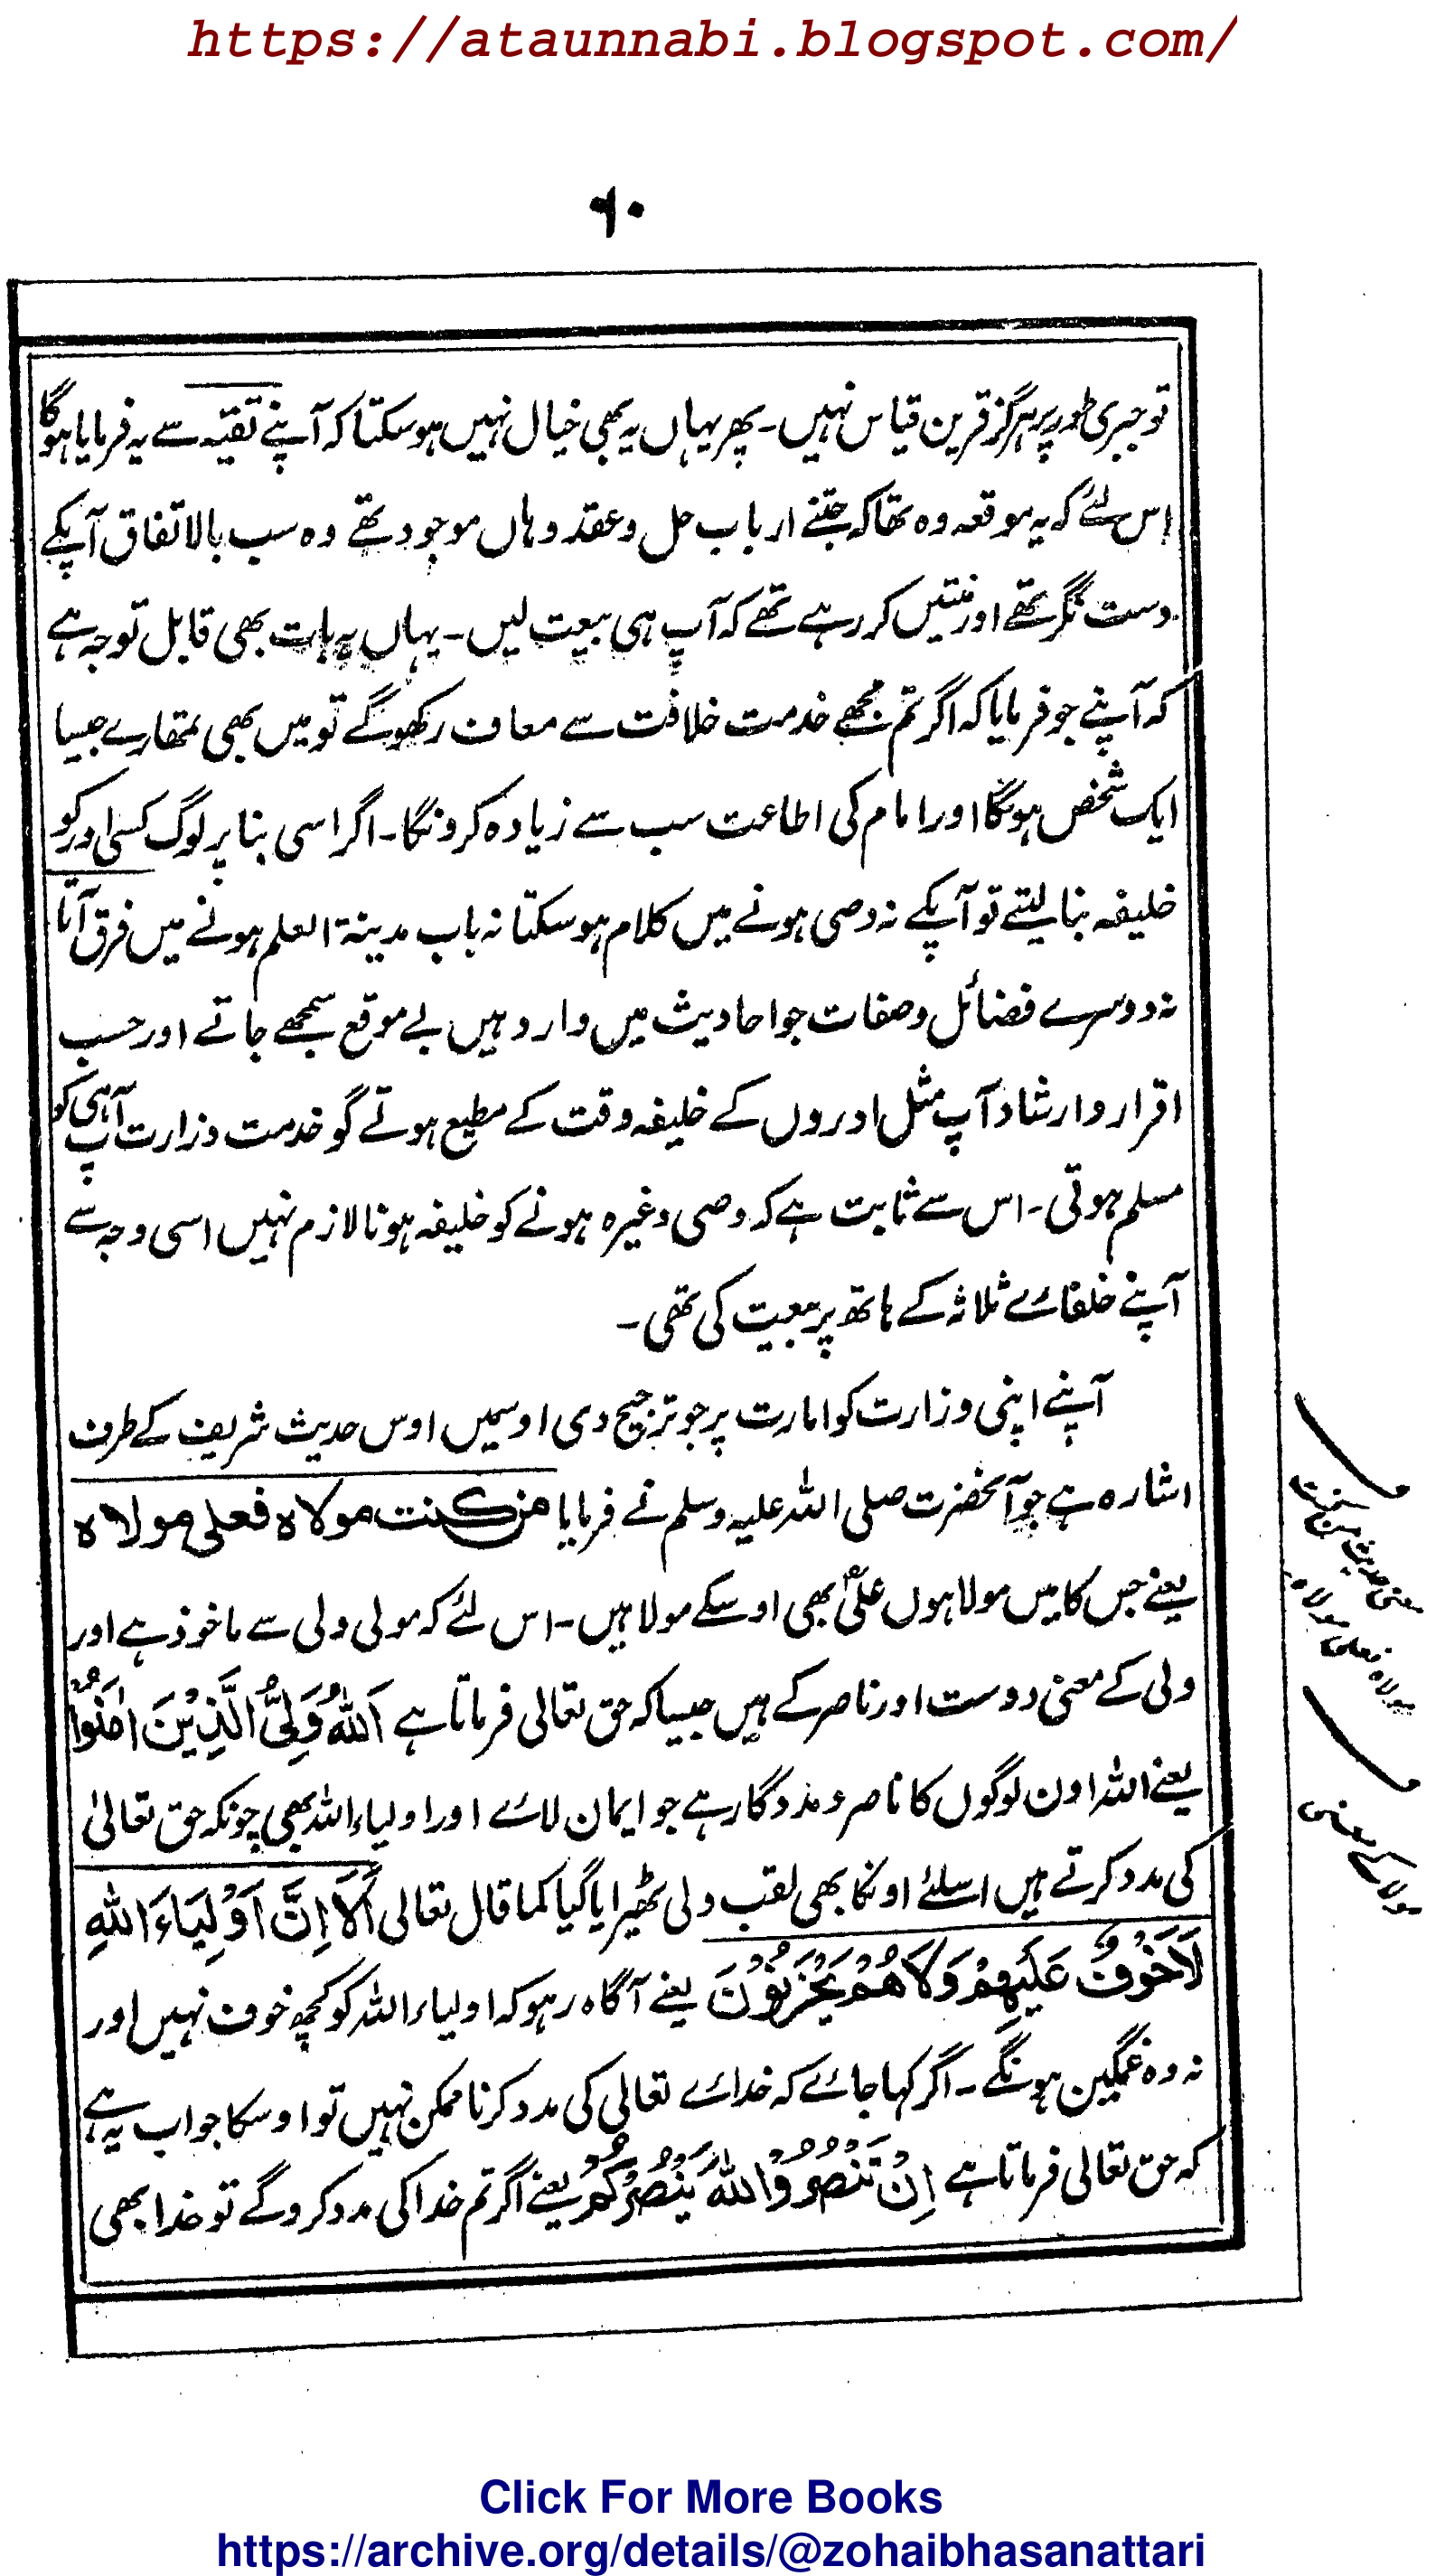 https://ataunnabi.blogspot.com/
۶۰
تو جبری طور پر ہرگز قرین قیاس نہیں ۔ پھر یہاں یہ بھی خیال نہیں ہوسکتا کہ آپنے تقیہ سے یہ فرمایا ہوگا
اس لئے کہ یہ موقعہ وہ تھا کہ جتنے ارباب حل وعقد وہاں موجود تھے وہ سب بالاتفاق آپکے
دست نگر تھے اور منتیں کر رہے تھے کہ آپ ہی بیعت لیں ۔ یہاں یہ بات بھی قابل توجہ ہے
کہ آپنے جو فرمایا کہ اگر تم مجھے خدمت خلافت سے معاف رکھوگے تو میں بھی تمھارے جیسا
ایک شخص ہونگا اور امام کی اطاعت سب سے زیادہ کرونگا ۔ اگر اسی بنا پر لوگ کسی اور کو
خلیفہ بنا لیتے تو آپکے نہ وصی ہونے میں کلام ہوسکتا نہ باب مدینۃ العلم ہونے میں فرق آتا
نہ دوسرے فضائل وصفات جو احادیث میں وارد ہیں بے موقع سمجھے جاتے اور حسب
اقرار وارشاد آپ مثل اوروں کے خلیفہ وقت کے مطیع ہوتے گو خدمت وزارت آپ ہی کو
مسلم ہوتی ۔ اس سے ثابت ہے کہ وصی وغیرہ ہونے کو خلیفہ ہونا لازم نہیں اسی وجہ سے
آپنے خلفائے ثلاثہ کے ہاتھ پر بیعت کی تھی ۔
آپنے اپنی وزارت کو امارت پر جو ترجیح دی اوسمیں اوس حدیث شریف کے طرف
اشارہ ہے جو آنحضرت صلی اللہ علیہ وسلم نے فرمایا من کنت مولاہ فعلی مولاہ
یعنے جس کا میں مولا ہوں علیؓ بھی اوسکے مولا ہیں ۔ اس لئے کہ مولی ولی سے ماخوذ ہے اور
ولی کے معنی دوست اور ناصر کے ہیں جیسا کہ حق تعالی فرماتا ہے اَللّٰهُ وَلِيُّ الَّذِيْنَ اٰمَنُوْا
یعنے اللہ اون لوگوں کا ناصر و مددگار ہے جو ایمان لائے اور اولیاء اللہ بھی چونکہ حق تعالیٰ
کی مدد کرتے ہیں اسلئے اونکا بھی لقب ولی ٹھیرایا گیا کما قال تعالی اَلَآ اِنَّ اَوْلِيَاءَ اللّٰهِ
لَاخَوْفٌ عَلَيْهِمْ وَلَا هُمْ يَحْزَنُوْنَ یعنے آگاہ رہو کہ اولیاء اللہ کو کچھ خوف نہیں اور
نہ وہ غمگین ہونگے ۔ اگر کہا جائے کہ خدائے تعالی کی مدد کرنا ممکن نہیں تو اوسکا جواب یہ ہے
کہ حق تعالی فرماتا ہے اِنْ تَنْصُرُوْا اللّٰهَ يَنْصُرْكُمْ یعنے اگر تم خدا کی مدد کروگے تو خدا بھی
معنی حدیث من کنت
مولاہ فعلی مولاہ
مولا کے معنی
Click For More Books
https://archive.org/details/@zohaibhasanattari